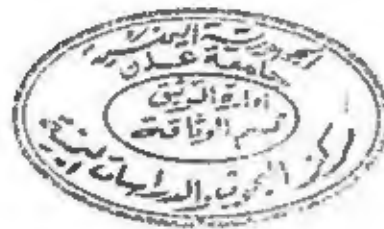 الجمهورية اليمنية
جامعة عدن
إدارة التوثيق
قسم الوثائق
مركز البحوث والدراسات اليمنية